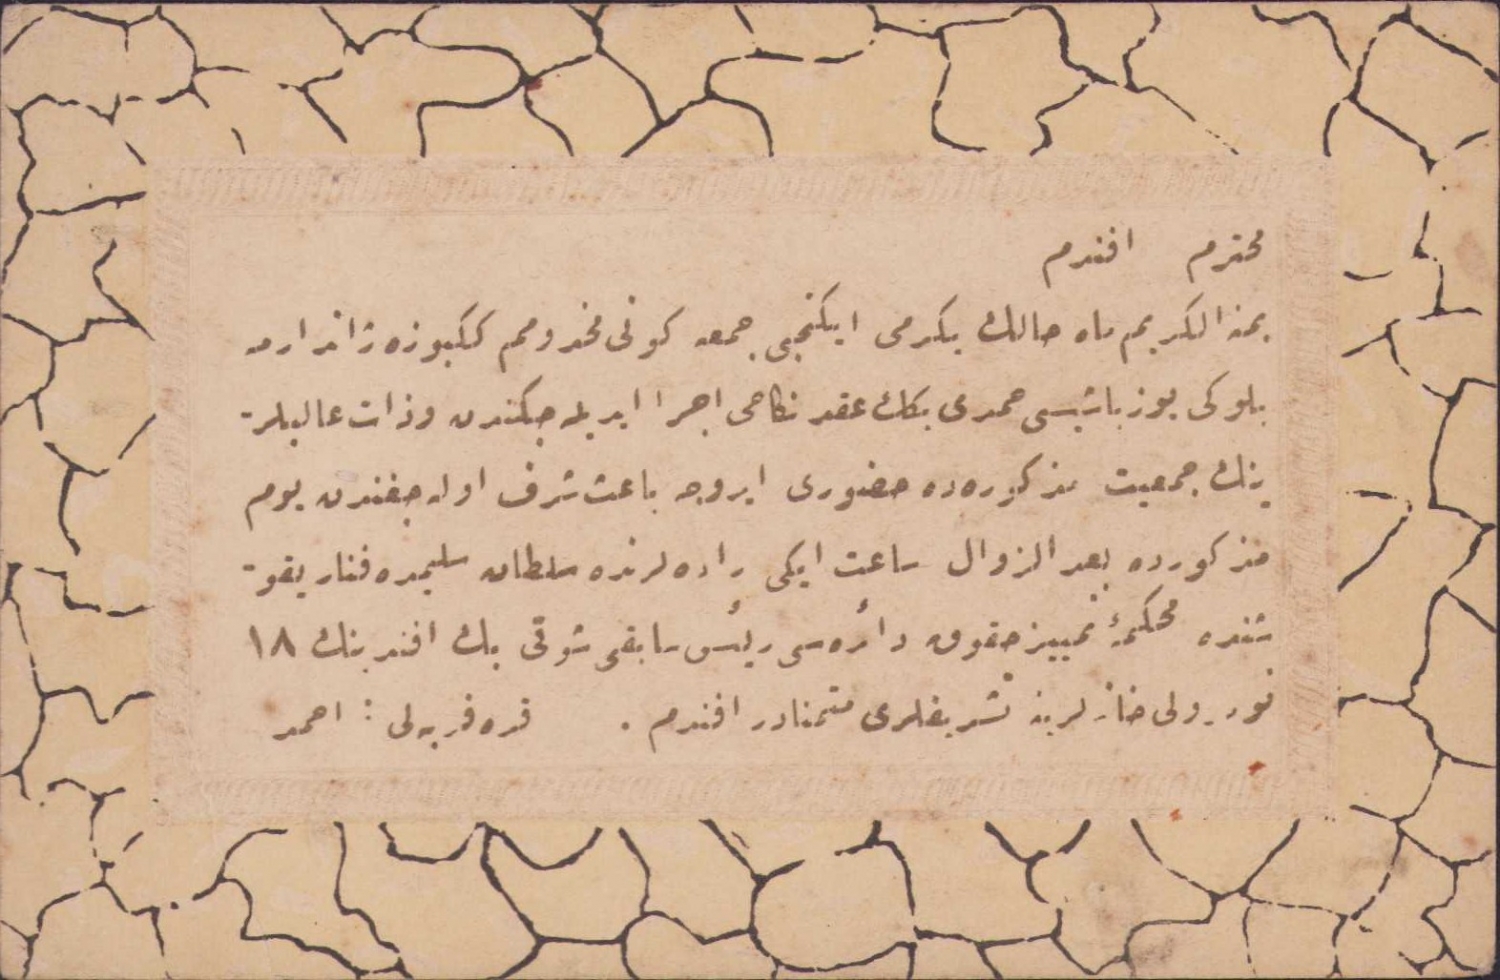 محترم افندم
بمنه الكريم ماه حالك يكرمى ايكنجى جمعه كونى مخدومم ككبوزه ژاندارمه
بلوكى يوزباشيسى حمدى بكك عقد نكاحى اجرا ايديله جكندن وذات عاليلر-
ينك جمعيت مذكوره‌ده حضورى ايروجه باعث شرف اوله جغندن يوم
مذكورده بعد الزوال ساعت ايكى راده لرنده سلطان سليمده فنار يقو-
شنده محكمهٔ تمييز حقوق دائره‌سى رئيس سابقى شوقى بك افندينك ١٨
نورولى خانه لرينه تشريفلرى متمنادر افندم . قره فريه‌لى : احمد